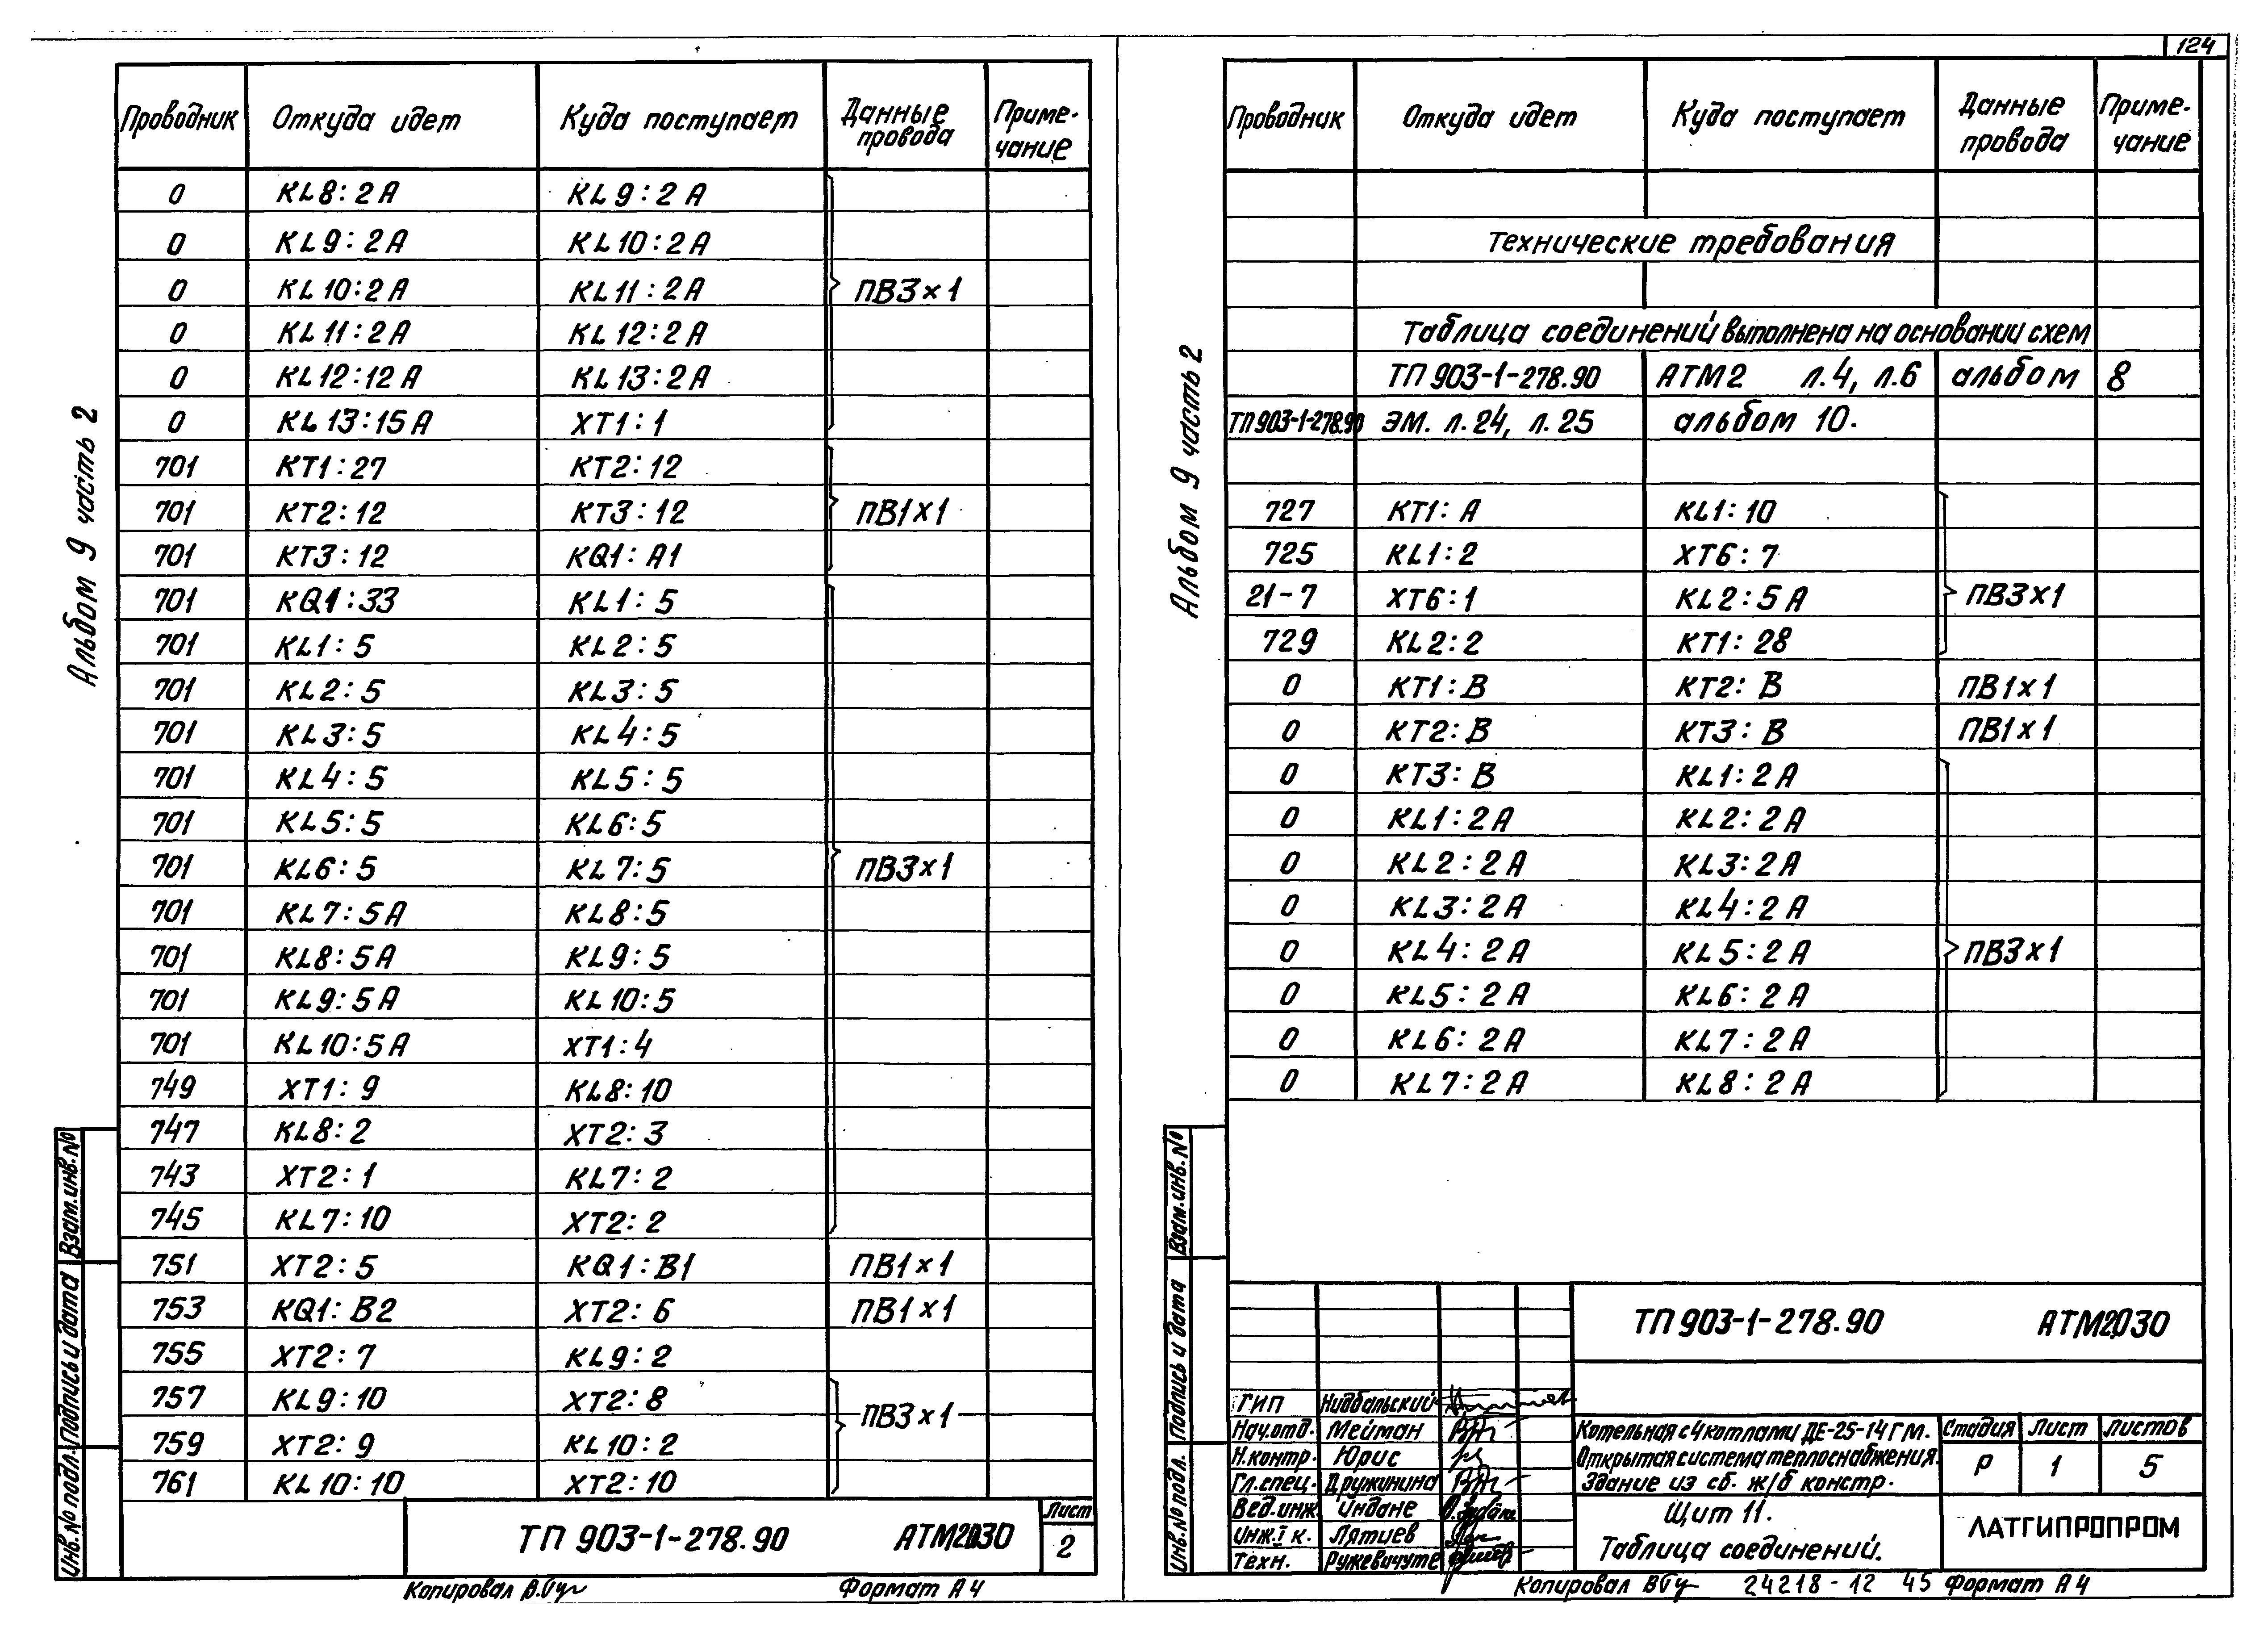 124
Альбом 9 часть 2
Проводник Откуда идет Куда поступает Данные провода Приме-чание
0 KL8:2A KL9:2A
0 KL9:2A KL10:2A
0 KL10:2A KL11:2A ПВ3×1
0 KL11:2A KL12:2A
0 KL12:12A KL13:2A
0 KL13:15A XT1:1
701 KT1:27 KT2:12
701 KT2:12 KT3:12 ПВ1×1
701 KT3:12 KQ1:A1
701 KQ1:33 KL1:5
701 KL1:5 KL2:5
701 KL2:5 KL3:5
701 KL3:5 KL4:5
701 KL4:5 KL5:5
701 KL5:5 KL6:5
701 KL6:5 KL7:5 ПВ3×1
701 KL7:5A KL8:5
701 KL8:5A KL9:5
701 KL9:5A KL10:5
701 KL10:5A XT1:4
749 XT1:9 KL8:10
747 KL8:2 XT2:3
743 XT2:1 KL7:2
745 KL7:10 XT2:2
751 XT2:5 KQ1:B1 ПВ1×1
753 KQ1:B2 XT2:6 ПВ1×1
755 XT2:7 KL9:2
757 KL9:10 XT2:8 ПВ3×1
759 XT2:9 KL10:2
761 KL10:10 XT2:10
Взам.инв.№
Подпись и дата
Инв.№ подл.
ТП 903-1-278.90 АТМ2.030 Лист 2
Копировал Формат А4
Альбом 9 часть 2
Проводник Откуда идет Куда поступает Данные провода Приме-чание
Технические требования
Таблица соединений выполнена на основании схем
ТП 903-1-278.90 АТМ2 л.4, л.6 альбом 8
ТП 903-1-278.90 ЭМ. л.24, л.25 альбом 10.
727 KT1:A KL1:10
725 KL1:2 XT6:7
21-7 XT6:1 KL2:5A ПВ3×1
729 KL2:2 KT1:28
0 KT1:B KT2:B ПВ1×1
0 KT2:B KT3:B ПВ1×1
0 KT3:B KL1:2A
0 KL1:2A KL2:2A
0 KL2:2A KL3:2A
0 KL3:2A KL4:2A
0 KL4:2A KL5:2A ПВ3×1
0 KL5:2A KL6:2A
0 KL6:2A KL7:2A
0 KL7:2A KL8:2A
Взам.инв.№
Подпись и дата
Инв.№ подл.
ТП 903-1-278.90 АТМ2.030
ГИП Нидбальский
Нач.отд. Мейман
Н.контр. Юрис
Гл.спец. Дружинина
Вед.инж. Индане
Инж.I к. Лятиев
Техн. Ружевичуте
Котельная с 4 котлами ДЕ-25-14ГМ.
Открытая система теплоснабжения.
Здание из сб. ж/б констр.
Стадия Лист Листов
Р 1 5
Щит 11.
Таблица соединений.
ЛАТГИПРОПРОМ
Копировал 24218-12 45 Формат А4